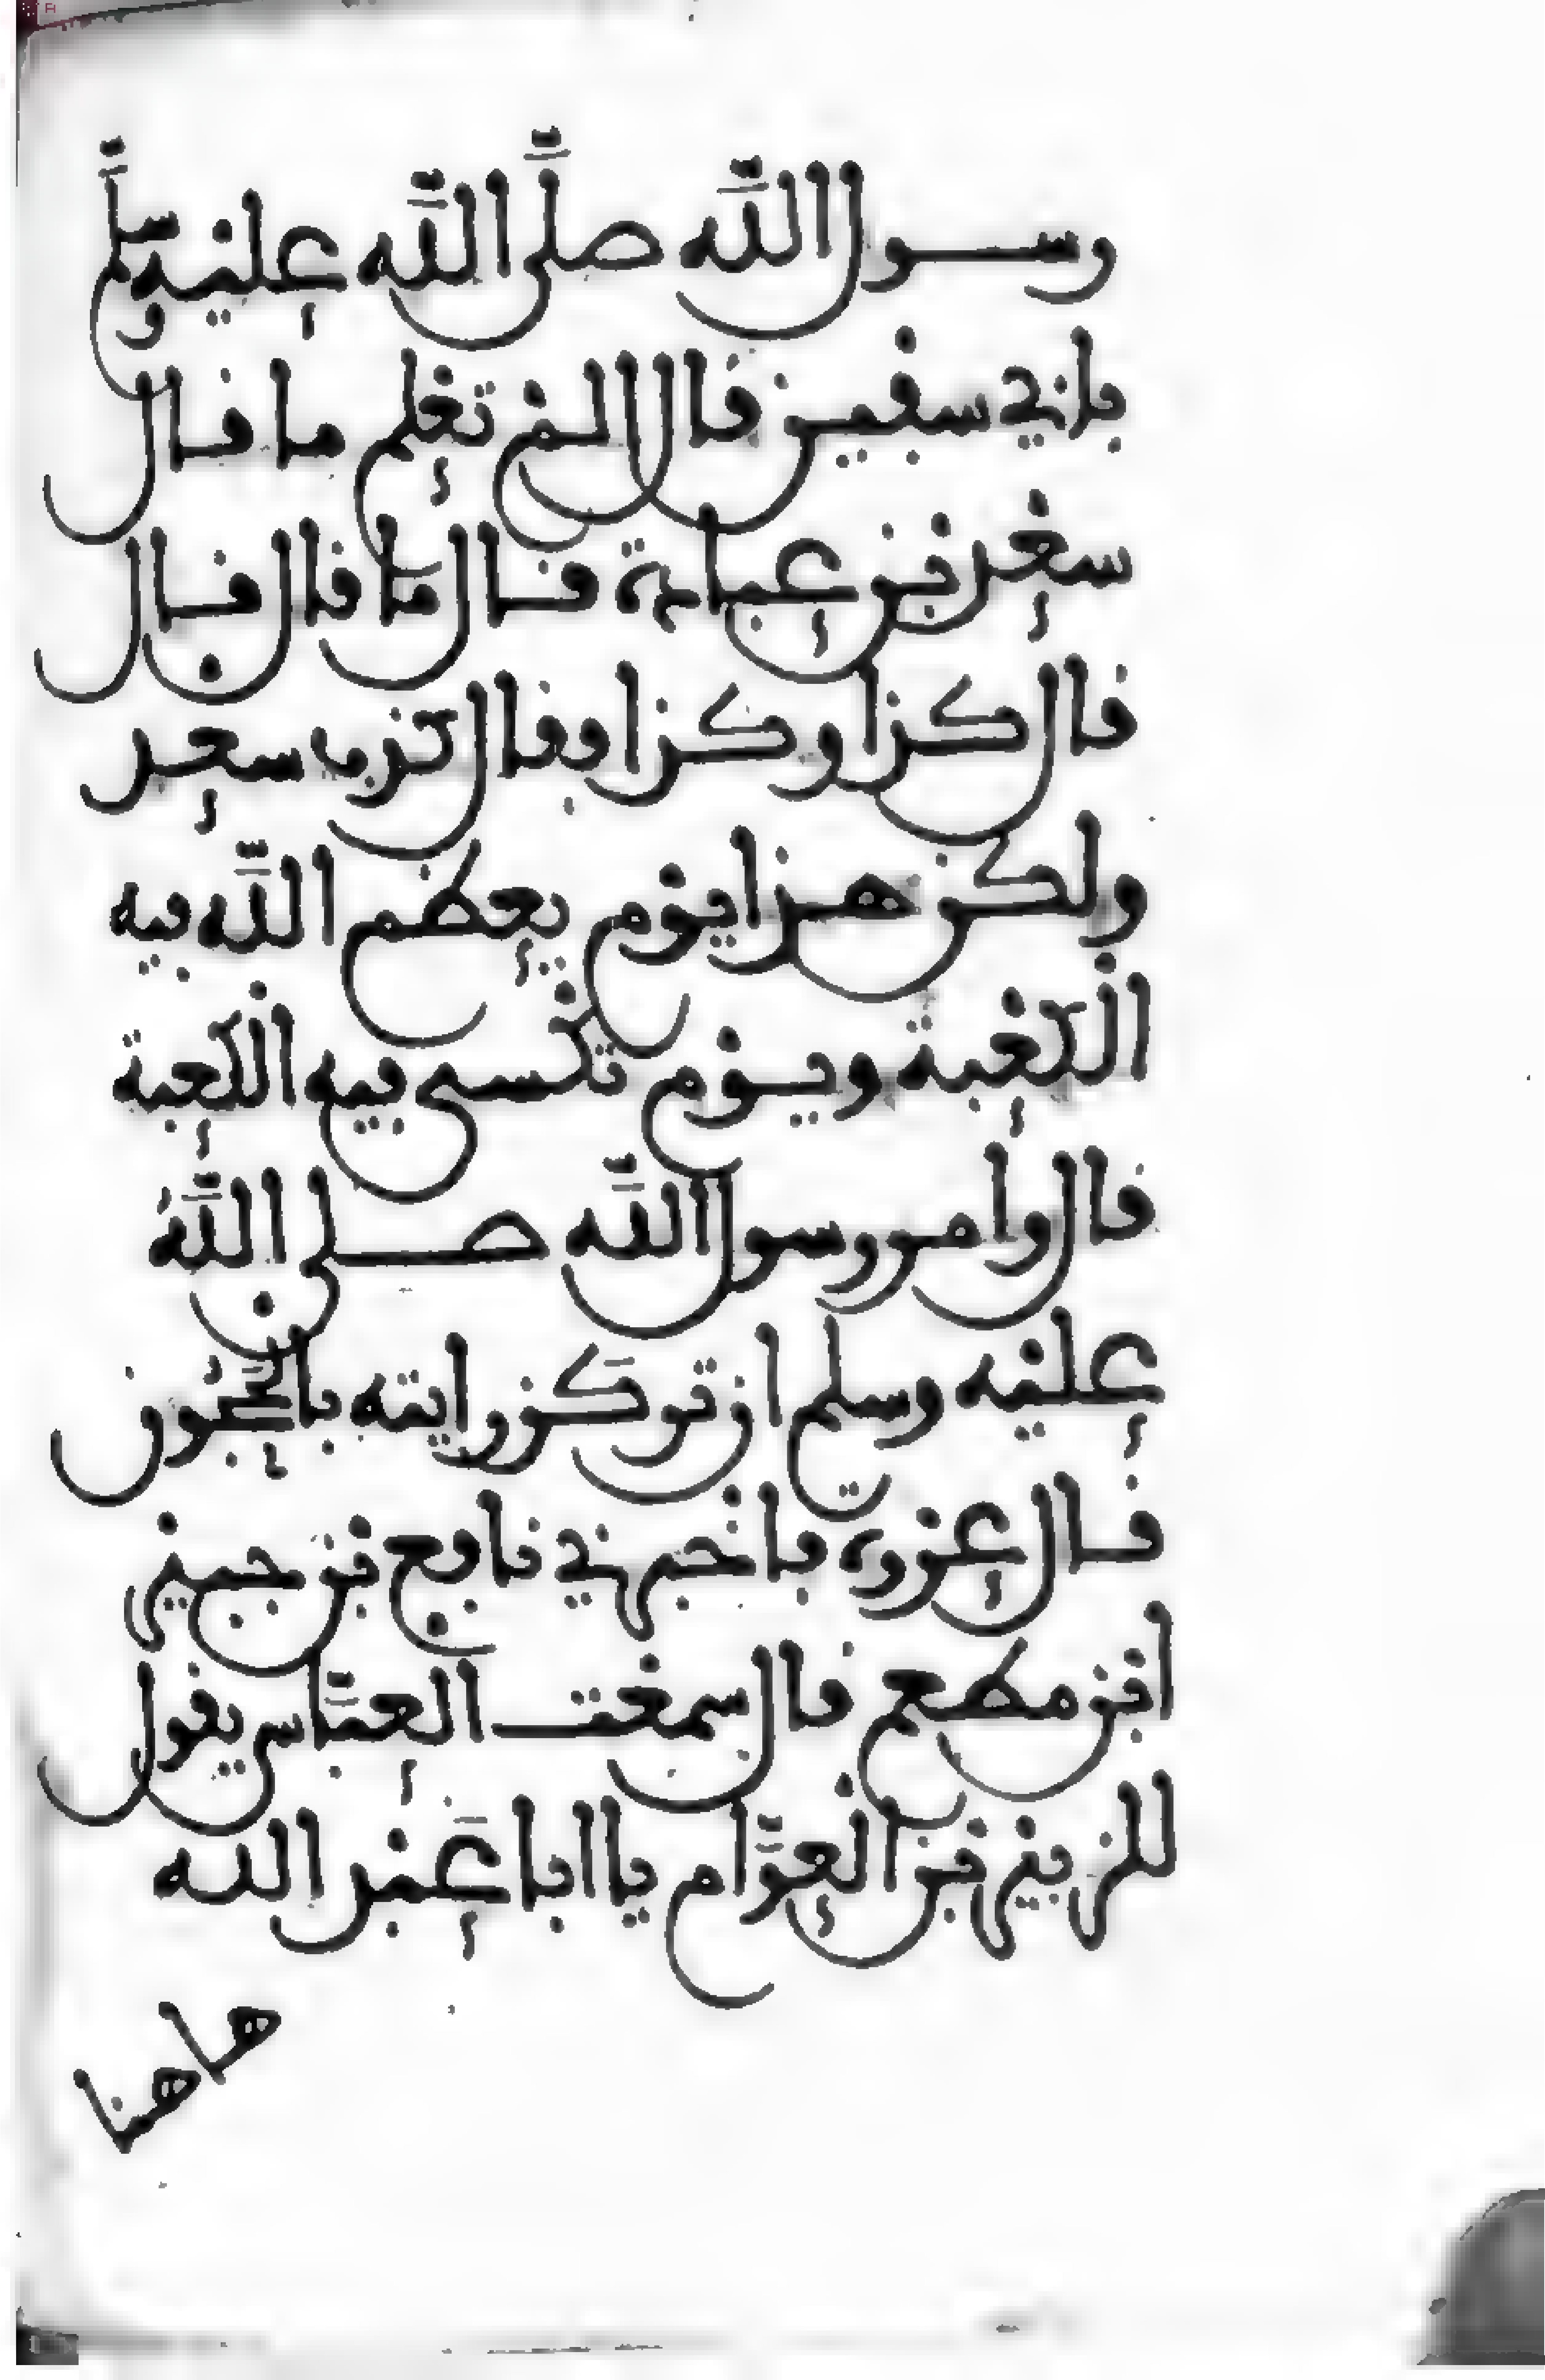 رسول الله صلى الله عليه وسلم
بأبي سفين قال الم تعلم ما قال
سعد بن عبادة قال ما قال قال
قال كذا وكذا وقال كذب سعد
ولكن هذا يوم يعظم الله فيه
الكعبة ويوم تكسى فيه الكعبة
قال وامر رسول الله صلى الله
عليه وسلم ان تركز رايته بالحجون
قال عروة فاخبرني نافع بن جبير
ابن مطعم قال سمعت العباس يقول
للزبير بن العوام يا ابا عبد الله
هاهنا